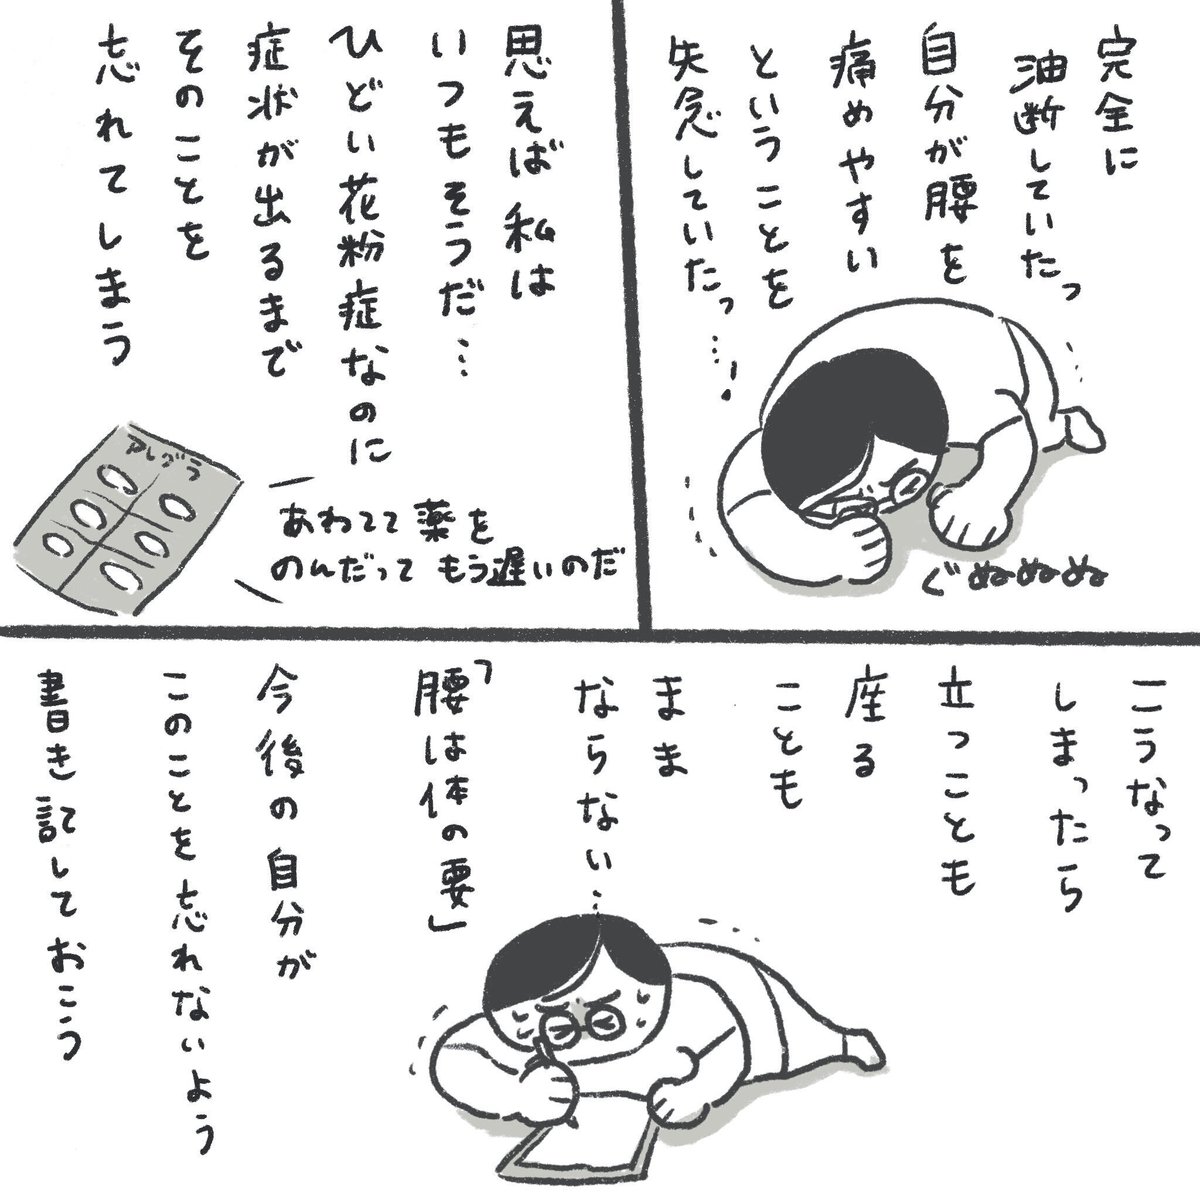 完全に
油断していたっ
自分が腰を
痛めやすい
ということを
失念していたっ…!
ぐぬぬぬ
思えば私は
いつもそうだ…
ひどい花粉症なのに
症状が出るまで
そのことを
忘れてしまう
アレグラ
あわてて薬を
のんだってもう遅いのだ
こうなって
しまったら
立つことも
座る
ことも
まま
ならない…
「腰は体の要」
今後の自分が
このことを忘れないよう
書き記しておこう